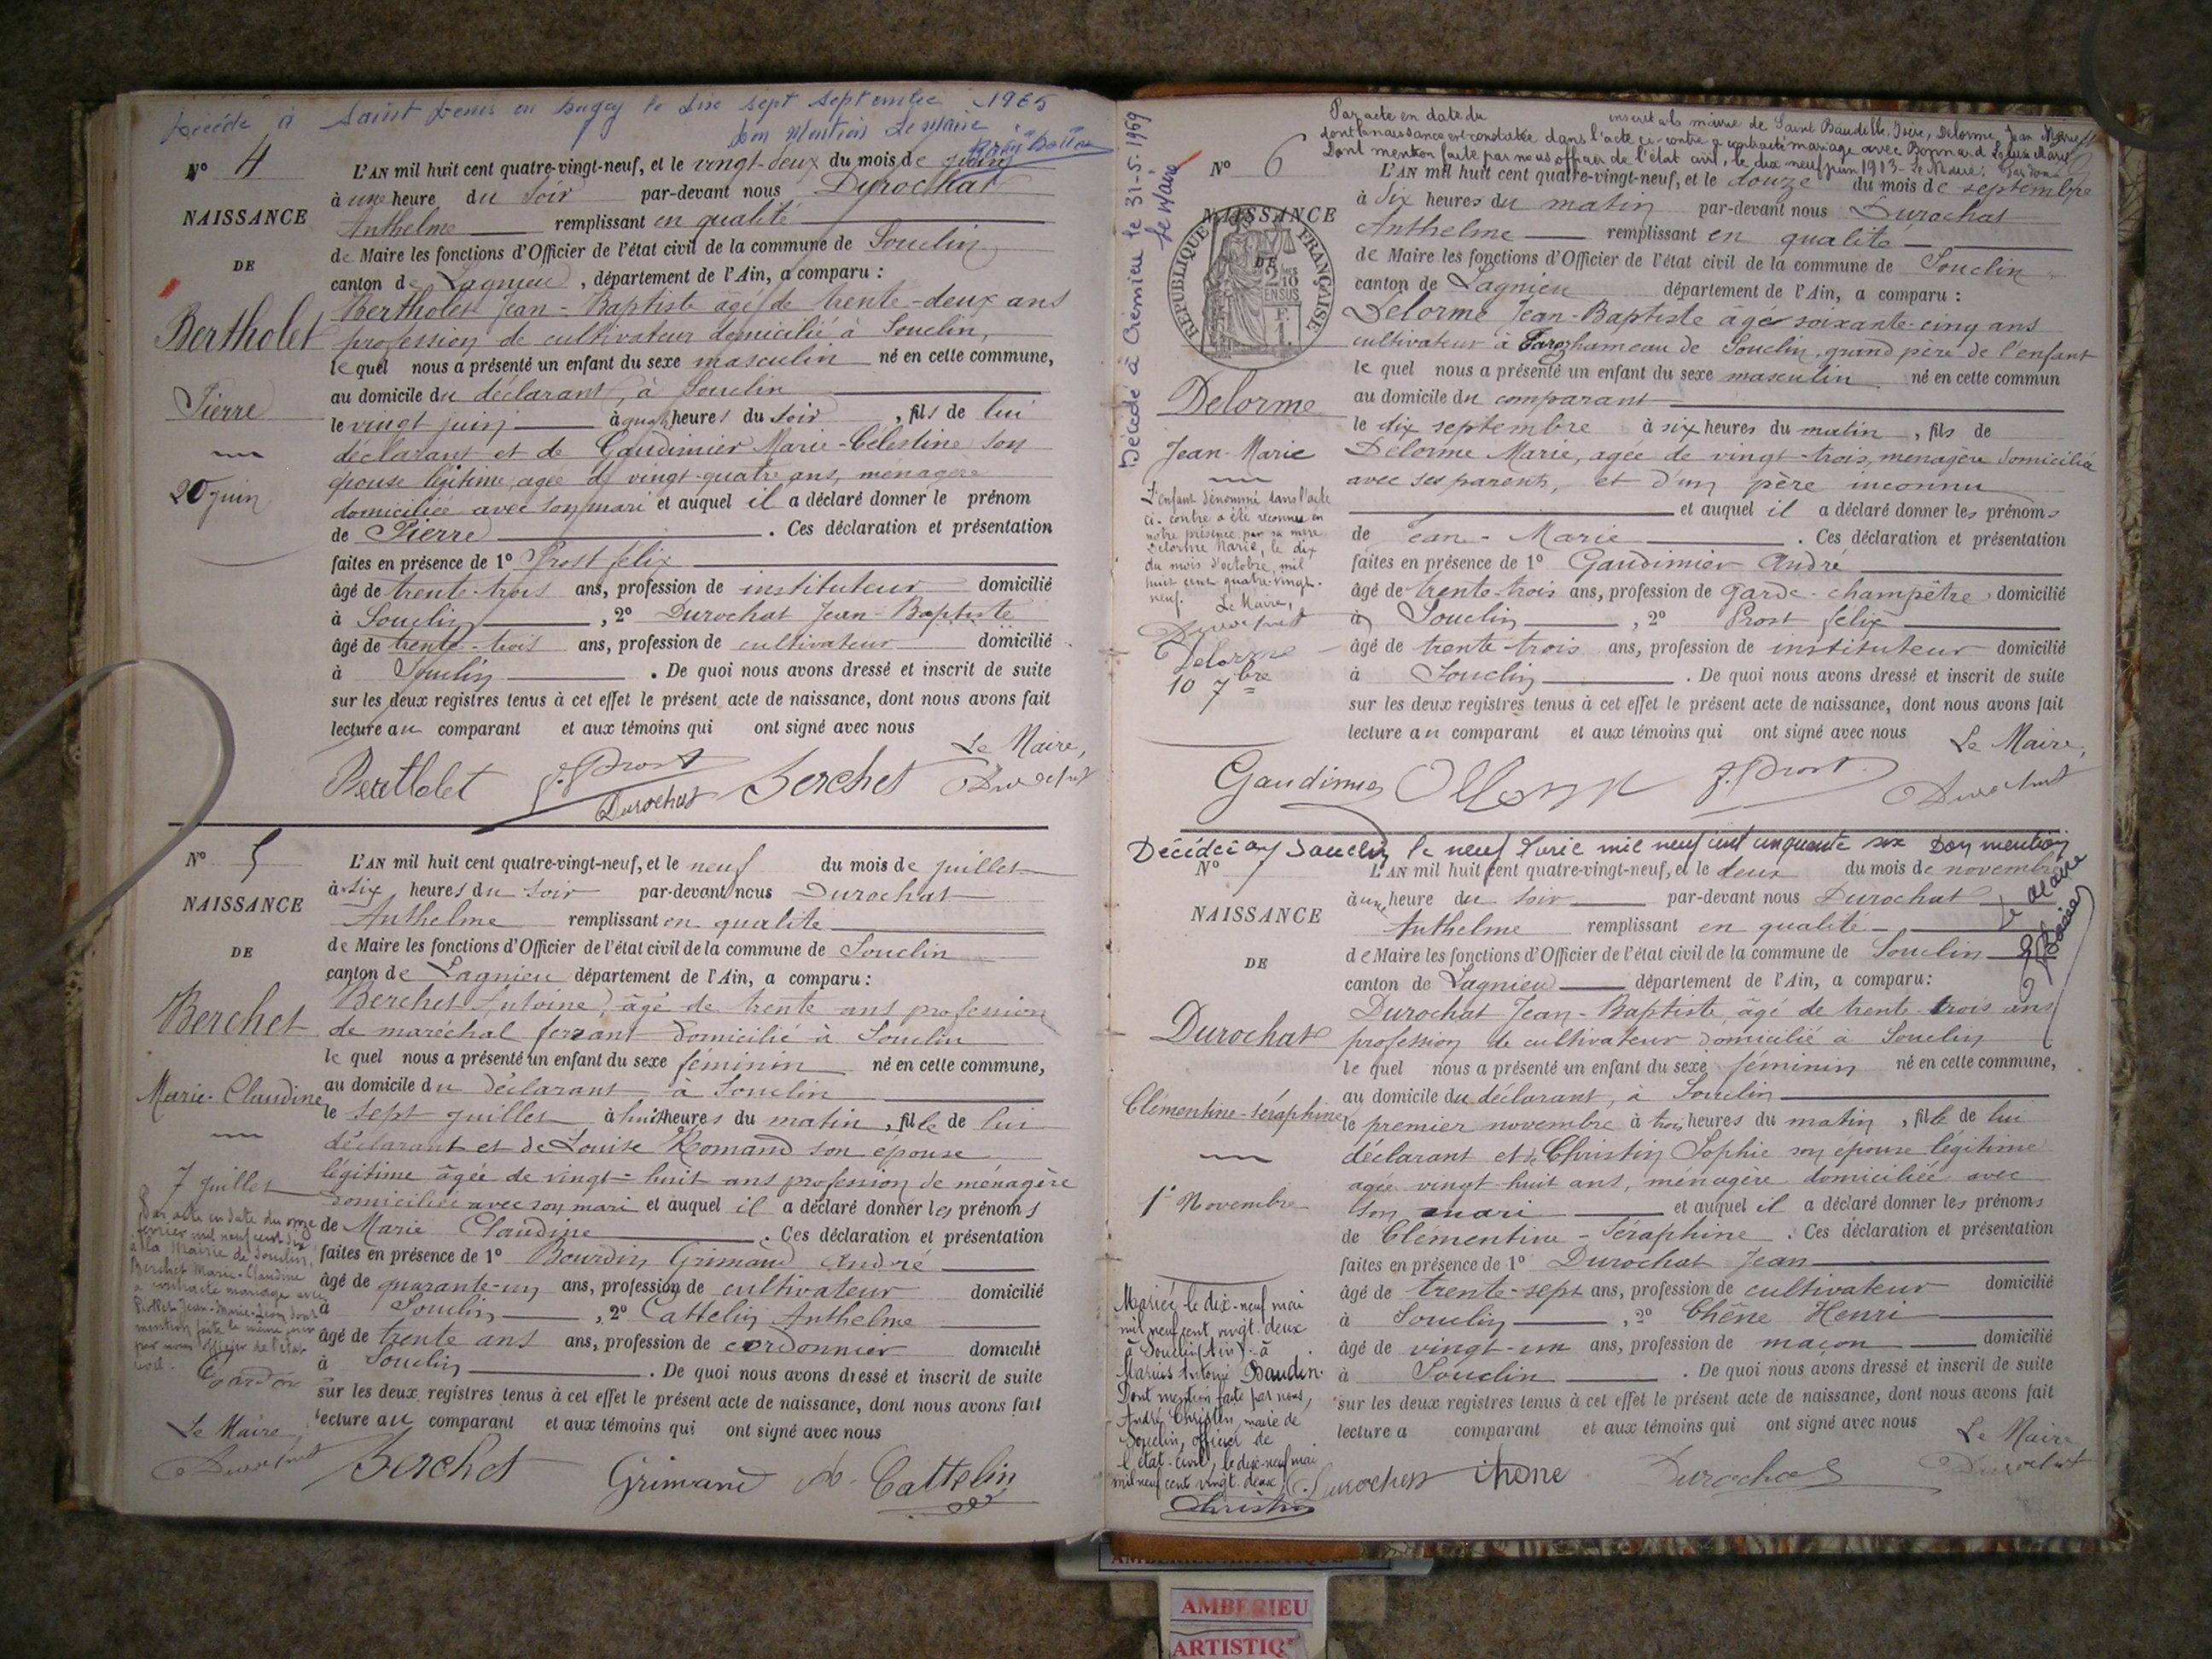 Décédé à Saint Denis en Bugey le dix sept septembre 1965
Dont Mention Le Maire
N° 4
NAISSANCE
DE
Bertholet
Pierre
20 juin
L'AN mil huit cent quatre-vingt-neuf, et le vingt-deux du mois de juin
à une heure du soir par-devant nous Durochat
Anthelme remplissant en qualité
de Maire les fonctions d'Officier de l'état civil de la commune de Souclin
canton de Lagnieu, département de l'Ain, a comparu :
Bertholet Jean-Baptiste âgé de trente-deux ans
profession de cultivateur domicilié à Souclin,
le quel nous a présenté un enfant du sexe masculin né en cette commune,
au domicile du déclarant, à Souclin
le vingt juin à quatre heures du soir, fils de lui
déclarant et de Gaudimier Marie-Célestine son
épouse légitime, agée de vingt-quatre ans, menagère
domiciliée avec son mari et auquel il a déclaré donner le prénom
de Pierre. Ces déclaration et présentation
faites en présence de 1° Prost felix
âgé de trente-trois ans, profession de instituteur domicilié
à Souclin, 2° Durochat Jean-Baptiste
âgé de trente-trois ans, profession de cultivateur domicilié
à Souclin. De quoi nous avons dressé et inscrit de suite
sur les deux registres tenus à cet effet le présent acte de naissance, dont nous avons fait
lecture au comparant et aux témoins qui ont signé avec nous
Le Maire,
Berthelet J. Prost Durochat Berchet Durochat
N° 5
NAISSANCE
DE
Berchet
Marie-Claudine
7 Juillet
Par acte en date du onze
février mil neuf cent dix
à la Mairie de Souclin,
Berchet Marie-Claudine
a contracté mariage avec
Jean-Marie-Léon dont
mention faite le même jour
par nous officier de l'état
civil.
L'AN mil huit cent quatre-vingt-neuf, et le neuf du mois de juillet
à six heures du soir par-devant nous Durochat
Anthelme remplissant en qualité
de Maire les fonctions d'Officier de l'état civil de la commune de Souclin
canton de Lagnieu département de l'Ain, a comparu :
Berchet Antoine, âgé de trente ans profession
de maréchal ferrant domicilié à Souclin
le quel nous a présenté un enfant du sexe féminin né en cette commune,
au domicile du déclarant à Souclin
le sept juillet à huit heures du matin, fille de lui
déclarant et de Louise Romand son épouse
légitime âgée de vingt-huit ans profession de ménagère
domiciliée avec son mari et auquel il a déclaré donner les prénoms
de Marie Claudine. Ces déclaration et présentation
faites en présence de 1° Bourdin Grimand André
âgé de quarante-un ans, profession de cultivateur domicilié
à Souclin, 2° Cattelin Anthelme
âgé de trente ans ans, profession de cordonnier domicilié
à Souclin. De quoi nous avons dressé et inscrit de suite
sur les deux registres tenus à cet effet le présent acte de naissance, dont nous avons fait
lecture au comparant et aux témoins qui ont signé avec nous
Le Maire,
Durochat Berchet Grimand A. Cattelin
Par acte en date du inscrit à la mairie de Saint Baudille, Isère, Delorme, Jean Marie
dont la naissance est constatée dans l'acte ci-contre a contracté mariage avec Bonnard
Dont mention faite par nous officier de l'état civil, le dix neuf juin 1913 - Le Maire.
Décédé à Crémieu le 31-5-1969
Le Maire
N° 6
NAISSANCE
DE
RÉPUBLIQUE FRANÇAISE
2/10 EN SUS
Delorme
Jean-Marie
L'enfant dénommé dans l'acte
ci-contre a été reconnu en
notre présence par sa mère
Delorme Marie, le dix
du mois d'octobre, mil
huit cent quatre-vingt-
neuf.
Le Maire,
Durochat
Delorme
10 7bre
L'AN mil huit cent quatre-vingt-neuf, et le douze du mois de septembre
à six heures du matin par-devant nous Durochat
Anthelme remplissant en qualité
de Maire les fonctions d'Officier de l'état civil de la commune de Souclin
canton de Lagnieu département de l'Ain, a comparu :
Delorme Jean-Baptiste âgé soixante-cinq ans
cultivateur à hameau de Souclin, grand père de l'enfant
le quel nous a présenté un enfant du sexe masculin né en cette commun
au domicile du comparant
le dix septembre à six heures du matin, fils de
Delorme Marie, agée de vingt-trois, menagère domiciliée
avec ses parents, et d'un père inconnu
et auquel il a déclaré donner les prénoms
de Jean-Marie. Ces déclaration et présentation
faites en présence de 1° Gaudimier André
âgé de trente-trois ans, profession de garde-champêtre, domicilié
à Souclin, 2° Prost félix
âgé de trente-trois ans, profession de instituteur domicilié
à Souclin. De quoi nous avons dressé et inscrit de suite
sur les deux registres tenus à cet effet le présent acte de naissance, dont nous avons fait
lecture au comparant et aux témoins qui ont signé avec nous
Le Maire,
Gaudimier J. Prost Durochat
Décédée à Souclin le neuf mil neuf cent cinquante six Dont mention
Le Maire
N° 7
NAISSANCE
DE
Durochat
Clémentine-Séraphine
1er Novembre
Mariée le dix-neuf mai
mil neuf cent vingt-deux
à Souclin (Ain) à
Marius Antoine Baudin.
Dont mention faite par nous,
André Christin, maire de
Souclin, officier de
l'état-civil, le dix-neuf mai
mil neuf cent vingt deux.
Christin
L'AN mil huit cent quatre-vingt-neuf, et le deux du mois de novembre
à une heure du soir par-devant nous Durochat
Anthelme remplissant en qualité
de Maire les fonctions d'Officier de l'état civil de la commune de Souclin
canton de Lagnieu département de l'Ain, a comparu :
Durochat Jean-Baptiste, âgé de trente-trois ans
profession de cultivateur domicilié à Souclin
le quel nous a présenté un enfant du sexe féminin né en cette commune,
au domicile du déclarant, à Souclin
le premier novembre à trois heures du matin, fille de lui
déclarant et de Christin Sophie son épouse légitime
agée vingt-huit ans, ménagère domiciliée avec
son mari et auquel il a déclaré donner les prénoms
de Clémentine-Séraphine. Ces déclaration et présentation
faites en présence de 1° Durochat Jean
âgé de trente-sept ans, profession de cultivateur domicilié
à Souclin, 2° Chêne Henri
âgé de vingt-un ans, profession de maçon domicilié
à Souclin. De quoi nous avons dressé et inscrit de suite
sur les deux registres tenus à cet effet le présent acte de naissance, dont nous avons fait
lecture a comparant et aux témoins qui ont signé avec nous
Le Maire
Durochat Chêne Durochat Durochat
AMBERIEU ARTISTIQUE
AMBERIEU
ARTISTIQ